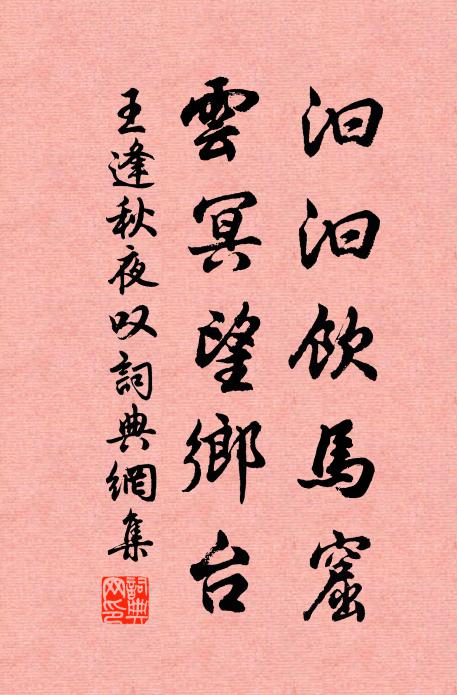 汩汩飲馬窟
雲冥望鄉台
王逢秋夜叹詞典網集
詞典
网印